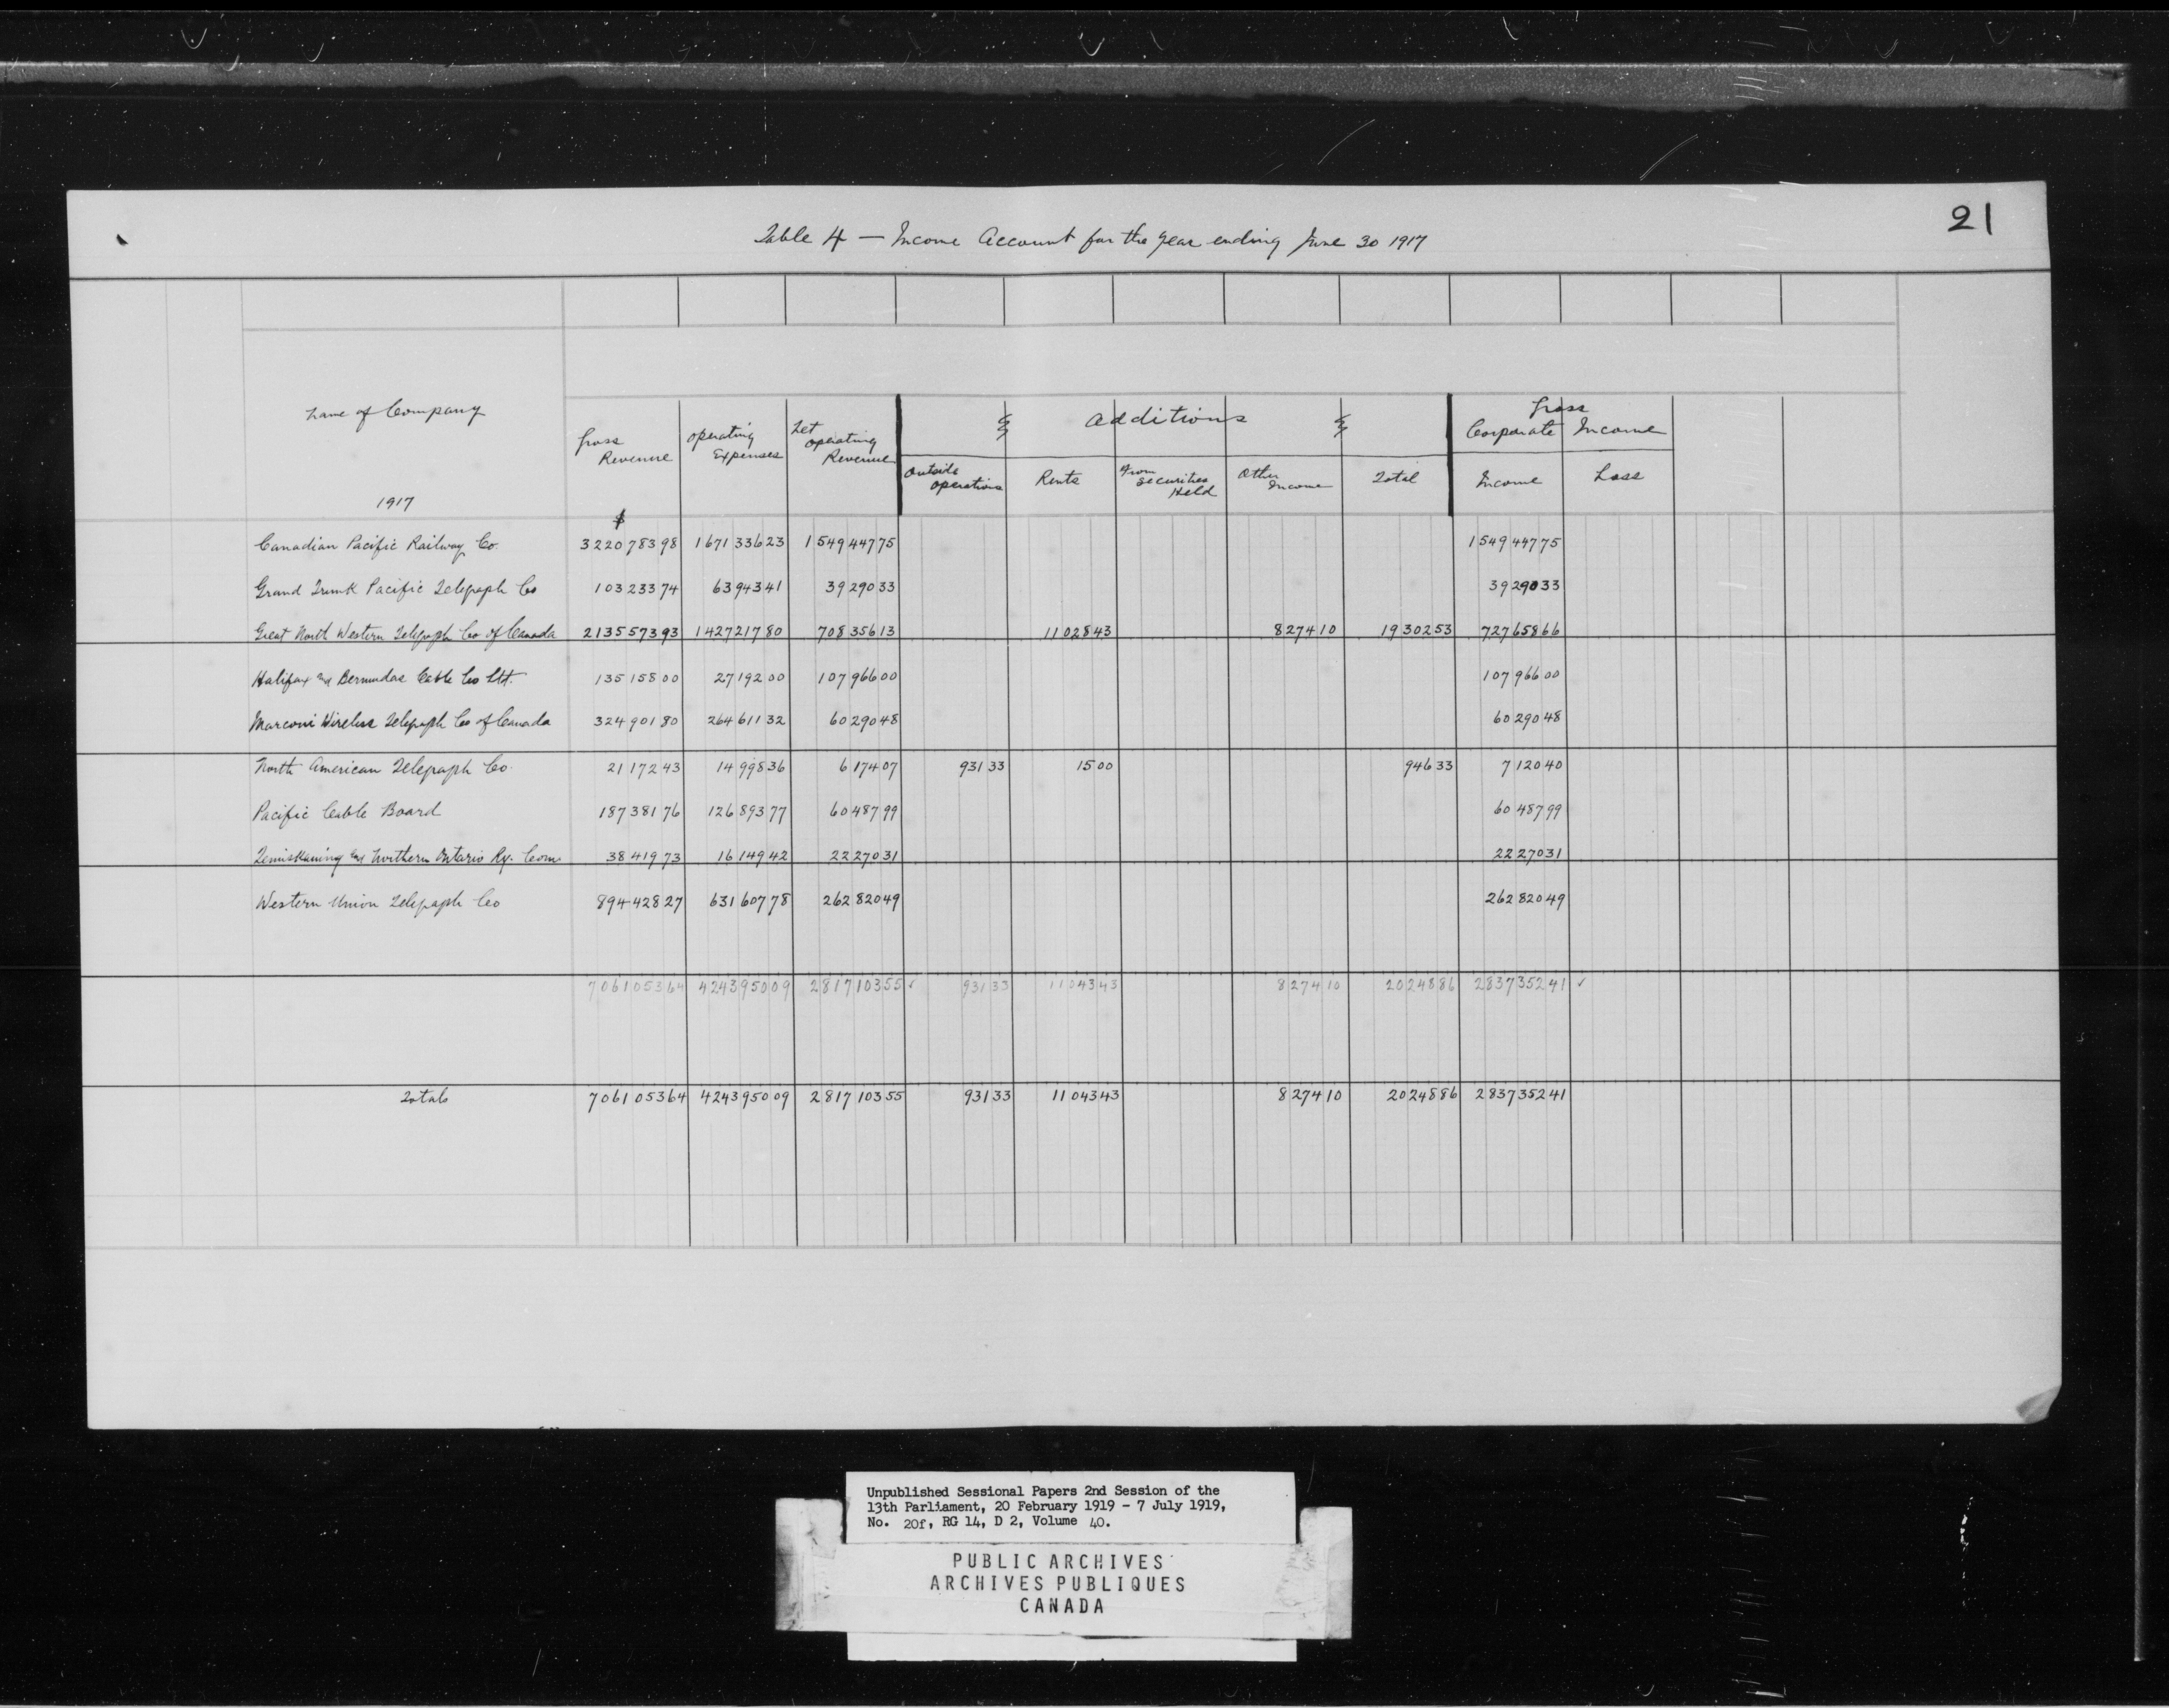 21
Table 4 — Income Account for the year ending June 30 1917
Name of Company
1917
Gross Revenue
Operating Expenses
Net Operating Revenue
Additions
Outside Operations
Rents
From Securities Held
Other Income
Total
Gross Corporate Income
Income
Loss
$
Canadian Pacific Railway Co. 322078398 167133623 154944775 154944775
Grand Trunk Pacific Telegraph Co 10323374 6394341 3929033 3929033
Great North Western Telegraph Co of Canada 213557393 142721780 70835613 1102843 827410 1930253 72765866
Halifax and Bermudas Cable Co Ltd. 13515800 2719200 10796600 10796600
Marconi Wireless Telegraph Co of Canada 32490180 26461132 6029048 6029048
North American Telegraph Co. 2117243 1499836 617407 93133 1500 94633 712040
Pacific Cable Board 18738176 12689377 6048799 6048799
Temiskaming and Northern Ontario Ry. Com. 3841973 1614942 2227031 2227031
Western Union Telegraph Co 89442827 63160778 26282049 26282049
706105364 424395009 281710355 ✓ 93133 1104343 827410 2024886 283735241 ✓
Totals 706105364 424395009 281710355 93133 1104343 827410 2024886 283735241
Unpublished Sessional Papers 2nd Session of the
13th Parliament, 20 February 1919 - 7 July 1919,
No. 20f, RG 14, D 2, Volume 40.
PUBLIC ARCHIVES
ARCHIVES PUBLIQUES
CANADA